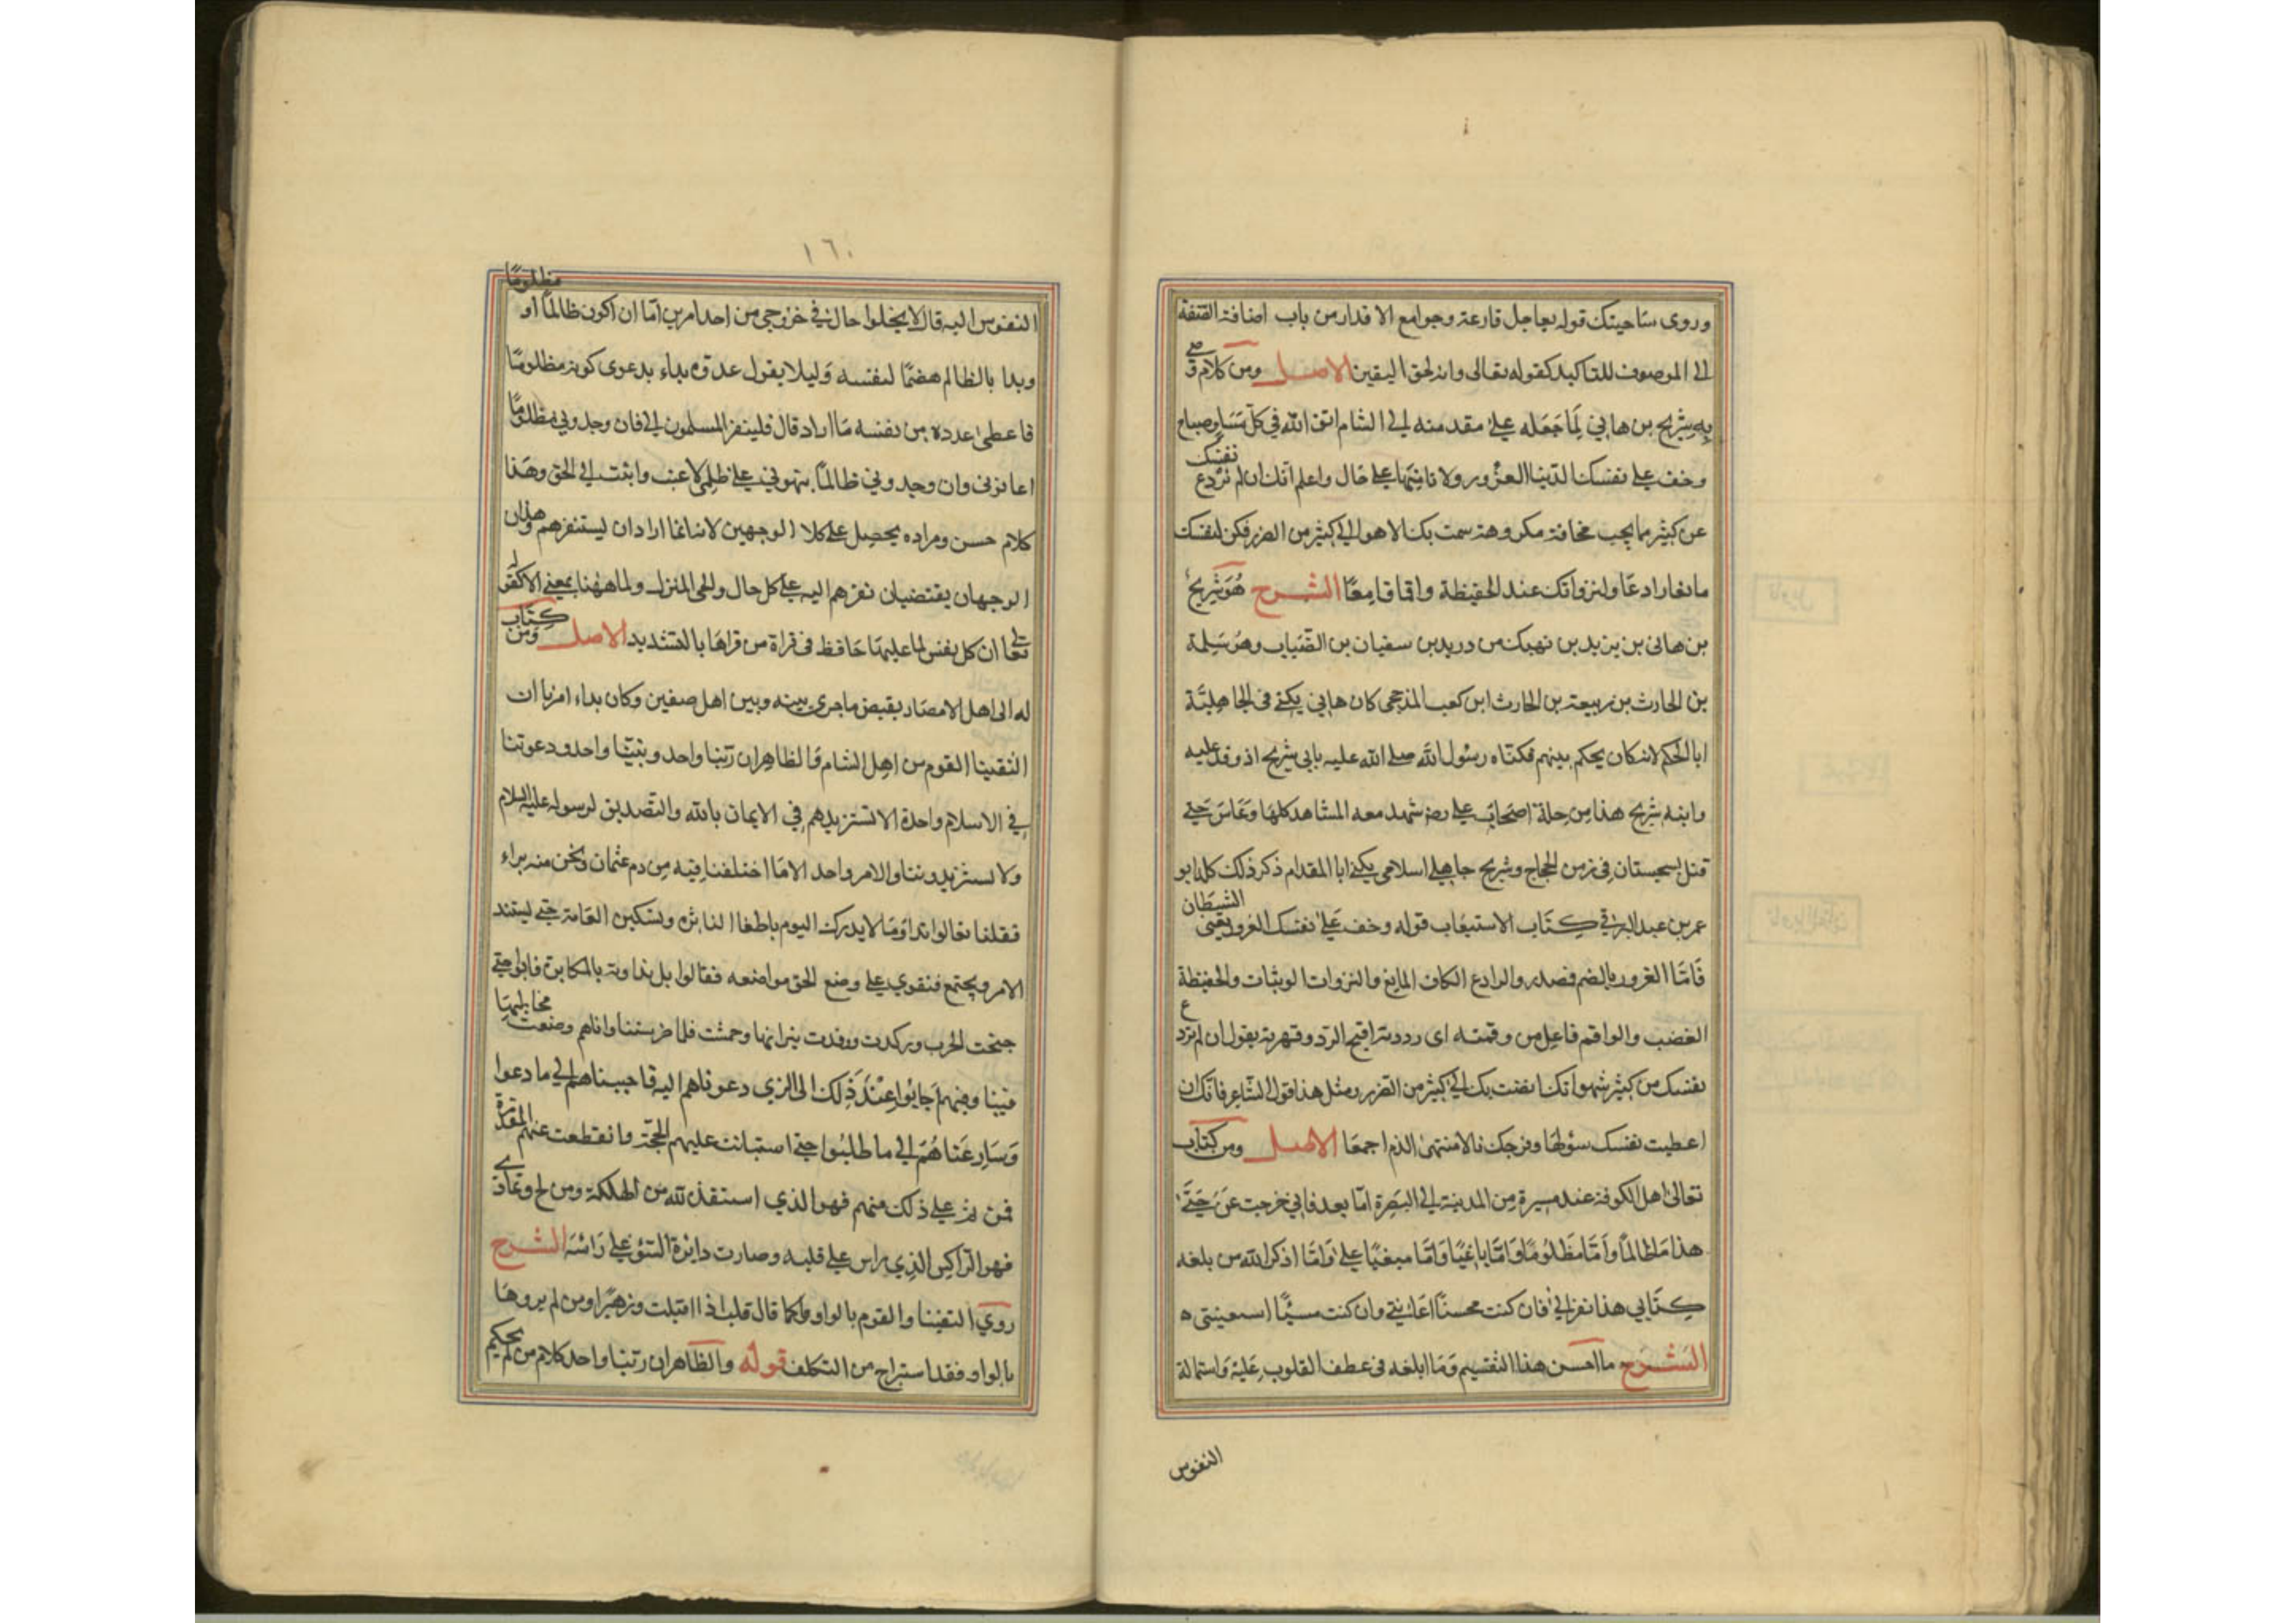 وروى بباحتك قوله بعاجل قارعة وجوامع الاقدار من باب اضافة الصفة
الى الموصوف للتاكيد كقوله تعالى وانه لحق اليقين الاصل ومن كلام وصى
به شريح بن هاني لما جعله على مقدمته الى الشام اتق الله في كل مساء وصباح
وخف على نفسك الدنيا الغرور ولا تامنها على حال واعلم انك ان لم تردع نفسك
عن كثير مما يحب مخافة مكروهه سمت بك الاهوا الى كثير من الضرر فكن لنفسك
مانعا رادعا ولنزواتك عند الحفيظة واقما قامعا الشرح هو شريح
بن هانئ بن يزيد بن نهيك بن دريد بن سفيان بن الضباب وهو سلمة
بن الحارث بن ربيعة بن الحارث ابن كعب المذحجي كان هاني يكنى في الجاهلية
ابا الحكم لانه كان يحكم بينهم فكناه رسول الله صلى الله عليه بابي شريح اذ وفد عليه
وابنه شريح هذا من جلة اصحاب علي رضه شهد معه المشاهد كلها وعاش حتى
قتل بسجستان في زمن الحجاج وشريح جاهلي اسلامي يكنى ابا المقدام ذكر ذلك كله ابو
عمر بن عبد البر في كتاب الاستيعاب قوله وخف على نفسك الغرور يعني الشيطان
فاما الغرور بالضم فصدر والرادع الكاف المانع والنزوات الوثبات والحفيظة
الغضب والواقم فاعل من وقمته اى رددته اقبح الرد وقهرته يقول ان لم تردع
نفسك من كثير شهواتك افضت بك الى كثير من الضرر ومثل هذا قول الشاعر فانك ان
اعطيت نفسك سؤلها وفرجك نالا منتهى الذم اجمعا الاصل ومن كتاب
تعالى اهل الكوفة عند مسيره من المدينة الى البصرة اما بعد فاني خرجت عن حيي
هذا اما ظالما واما مظلوما واما باغيا واما مبغيا علي واما اذكر الله من بلغه
كتابي هذا نفر الي فان كنت محسنا اعانني وان كنت مسيئا استعتبني
الشرح ما احسن هذا التقسيم وما ابلغه في عطف القلوب عليه واستمالة
النفوس
١٦٠
النفوس اليه قال لا يخلوا حالي في خروجي من احد امرين اما ان اكون ظالما او مظلوما
وبدا بالظالم هضما لنفسه وليلا يقول عدوه بداء بدعوى كونه مظلوما
فاعطى عدوه من نفسه ما اراد قال فلينفر المسلمون الي فان وجدوني مظلوما
اعانوني وان وجدوني ظالما نهوني على ظلمي لاعتب وانثب الى الحق وهذا
كلام حسن ومراده يحصل على كلا الوجهين لانه انما اراد ان يستنفرهم وهذان
الوجهان يقتضيان نفرهم اليه على كل حال والحى المنزل ولما ههنا بمعنى الا كقوله
تعالى ان كل نفس لما عليها حافظ في قراة من قراها بالتشديد الاصل ومن كتاب
له الى اهل الامصار يقتص ما جرى بينه وبين اهل صفين وكان بداء امرنا ان
التقينا القوم من اهل الشام فالظاهر ان ربنا واحد ونبينا واحد ودعوتنا
في الاسلام واحدة لا نستزيدهم في الايمان بالله والتصديق لرسوله عليه السلام
ولا يستزيدوننا والامر واحد الا ما اختلفنا فيه من دم عثمان ونحن منه براء
فقلنا تعالوا نداو ما لا يدرك اليوم باطفاا النائرة وتسكين العامة حتى يستند
الامر ويجتمع فنقوي على وضع الحق مواضعه فقالوا بل نداويه بالمكابرة فابوا حتى
جنحت الحرب وركدت ووقدت نيرانها وحمشت فلما ضرستنا واناهم وضعت مخالبها
فينا وفيهم اجابوا عند ذلك الى الذي دعوناهم اليه فاجبناهم الى ما دعوا
وسارعناهم الى ما طلبوا حتى استبانت عليهم الحجة وانقطعت عنهم المعذرة
فمن تم على ذلك منهم فهو الذي استنقذه الله من الهلكة ومن لج وتمادى
فهو الراكس الذي ران على قلبه وصارت دايرة السوء على راسه الشرح
روي التقينا والقوم بالواو وكما قال قلت اذا اقبلت وزهر ومن لم يروها
بالواو فقد استراح من التكلف قوله والظاهر ان ربنا واحد كلام من لم يحكم